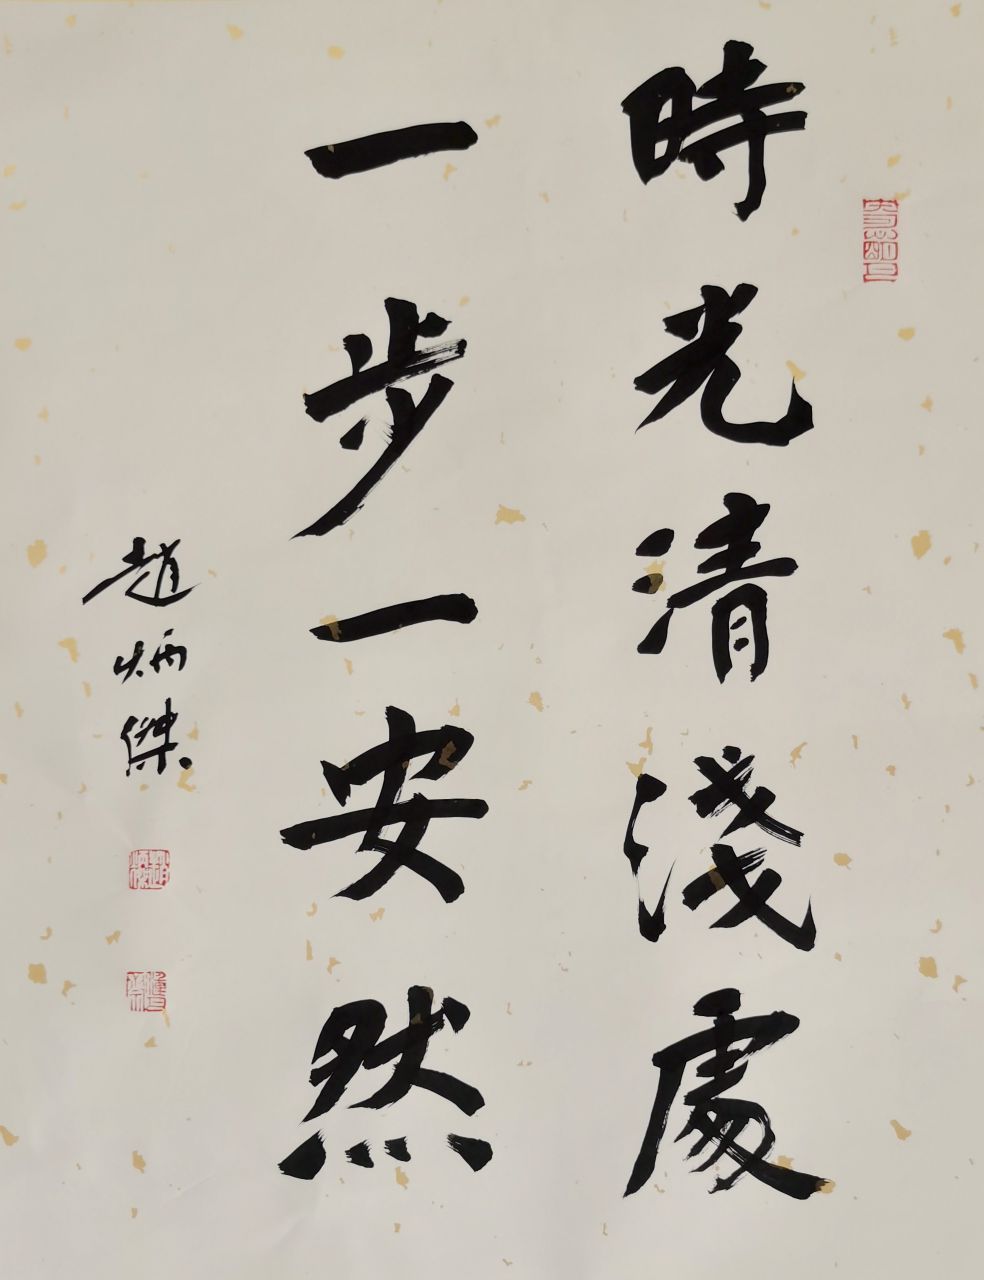 時光清淺處
一步一安然
趙炳傑